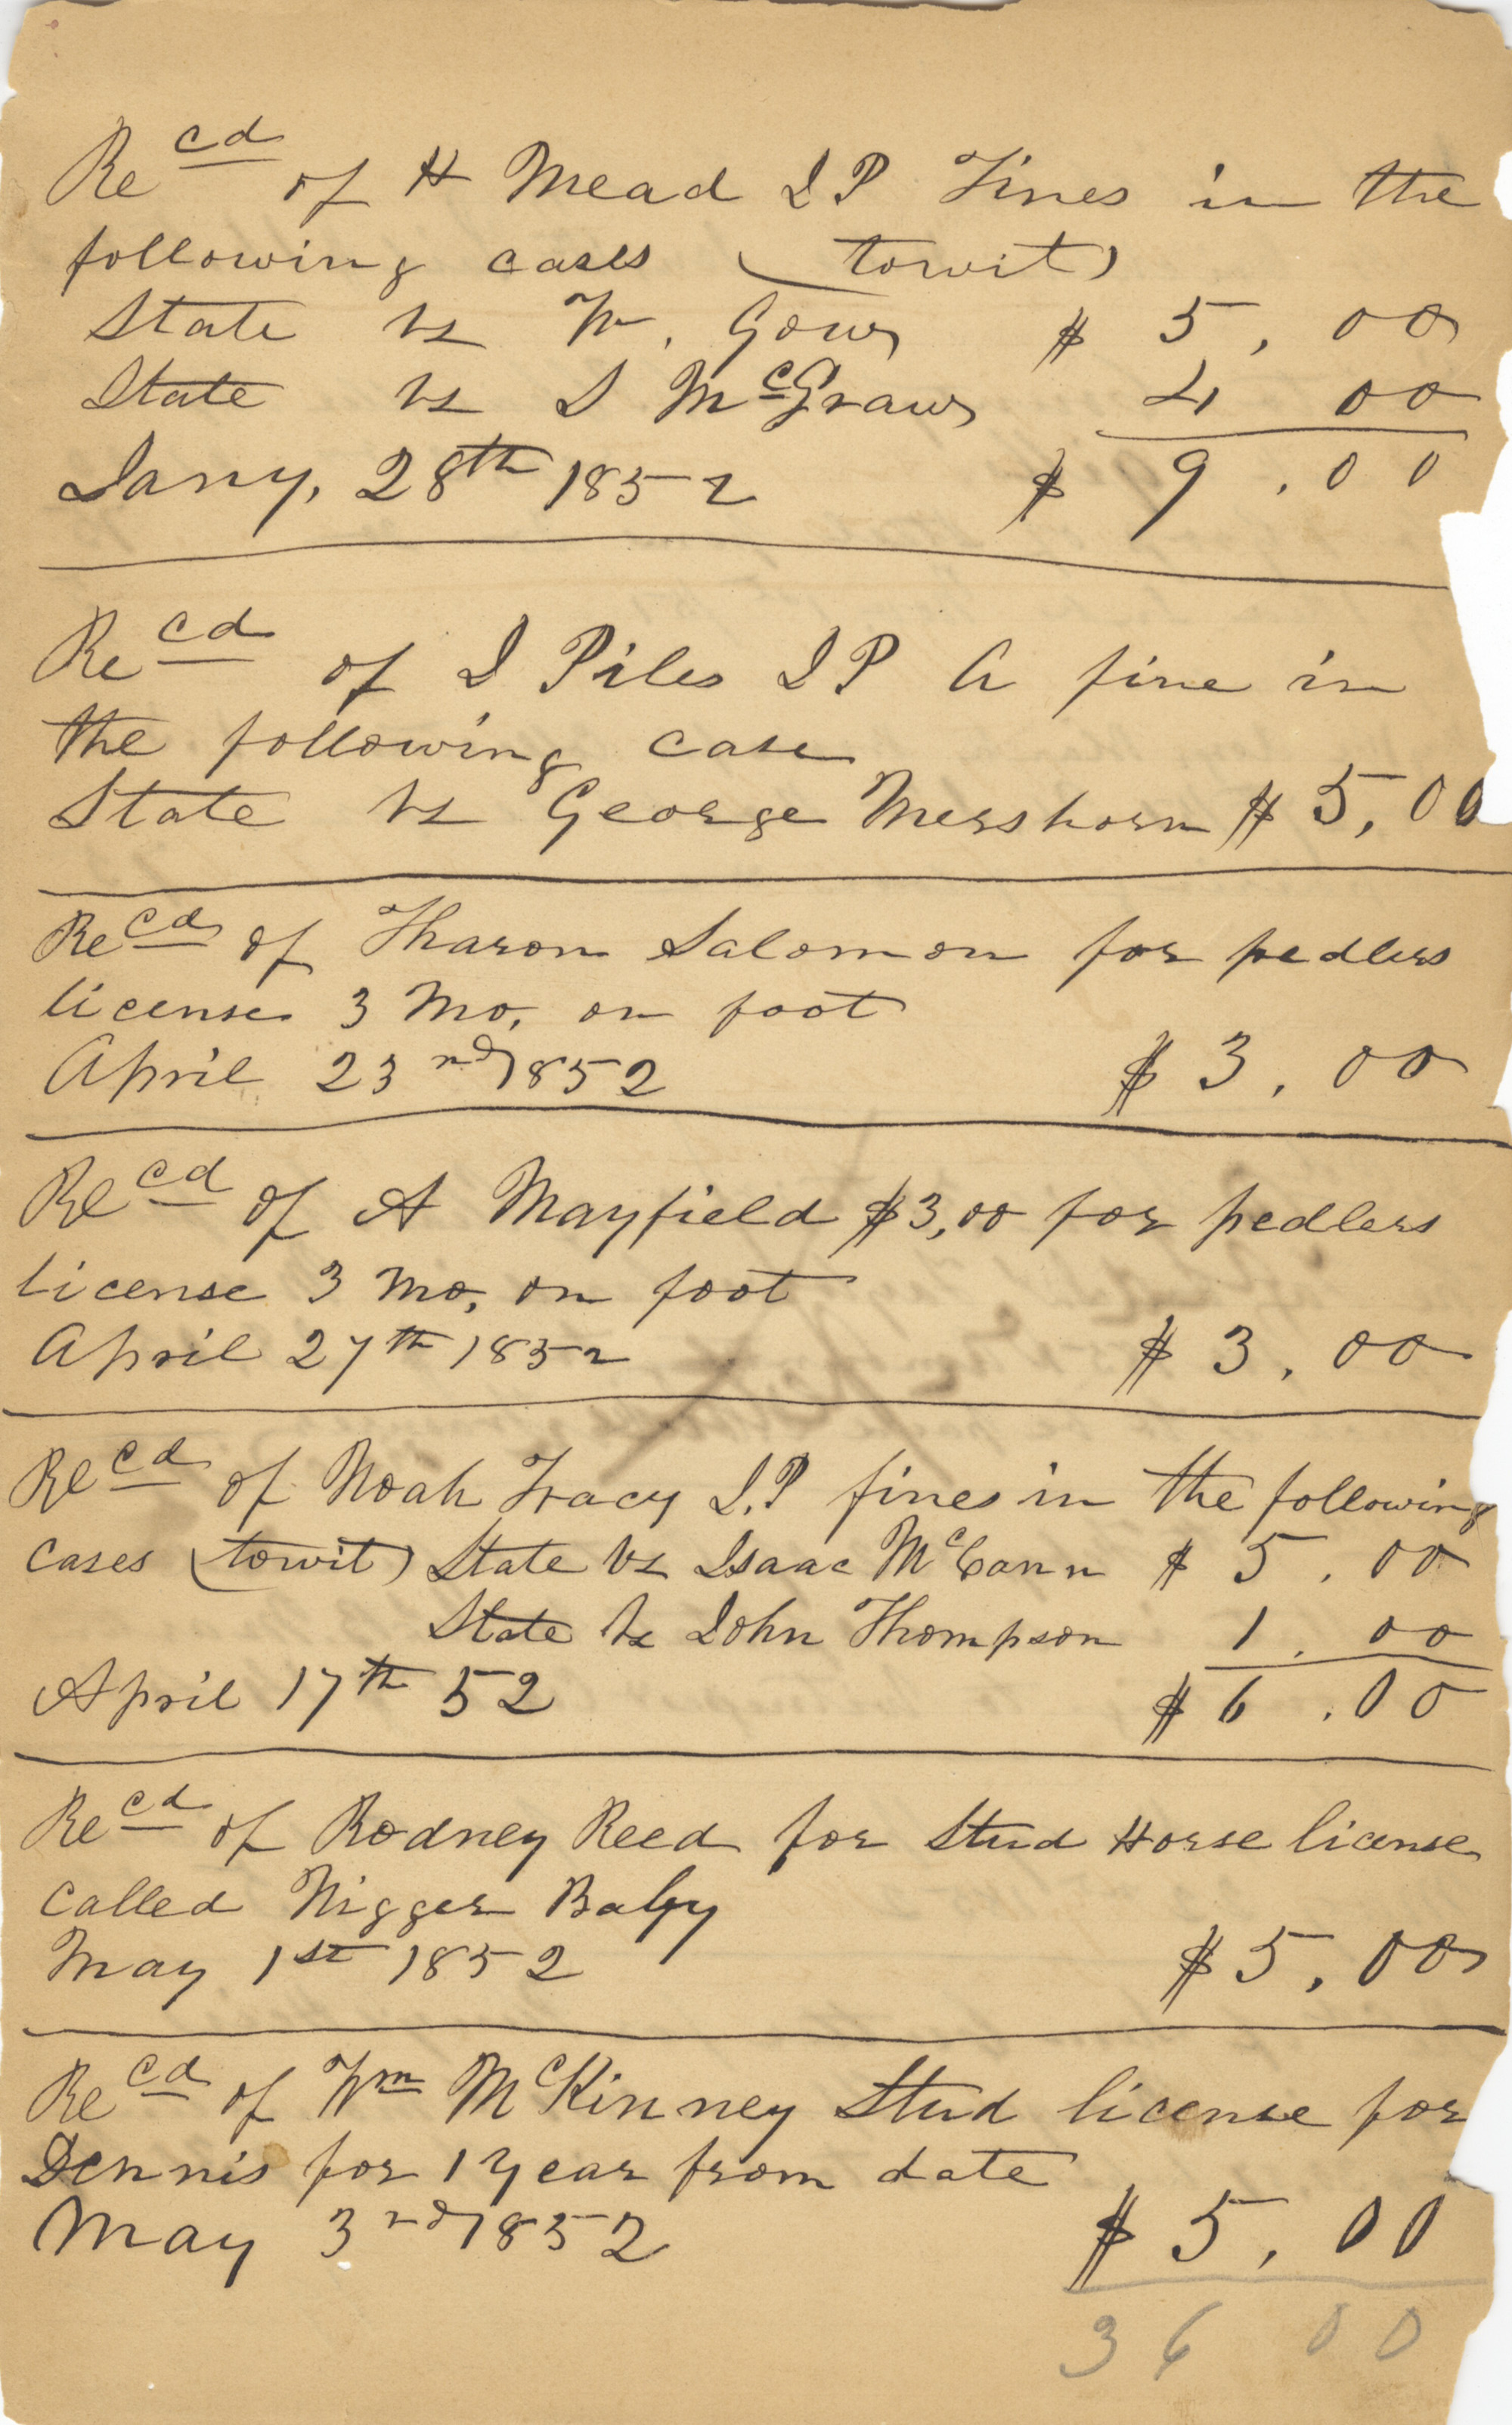 Recd of H Mead J P Fines in the
following cases (towit)
State vs W. Gow $ 5,00
State vs S McGraw 4 00
Jany, 28th 1852 $ 9.00
Recd of J Piles J P A fine in
the following case
State vs George Mershorn $ 5,00
Recd of Tharon Salomon for pedlers
license 3 Mo, on foot
April 23rd 1852 $ 3.00
Recd of A Mayfield $3,00 for pedlers
license 3 Mo, on foot
April 27th 1852 $ 3.00
Recd of Noah Tracy J.P fines in the following
cases (towit) State vs Isaac McCann $ 5.00
State vs John Thompson 1.00
April 17th 52 $ 6.00
Recd of Rodney Reed for Stud Horse license
called Nigger Baby
May 1st 1852 $ 5,00
Recd of Wm McKinney Stud license for
Dennis for 1 year from date
May 3rd 1852 $ 5,00
36 00